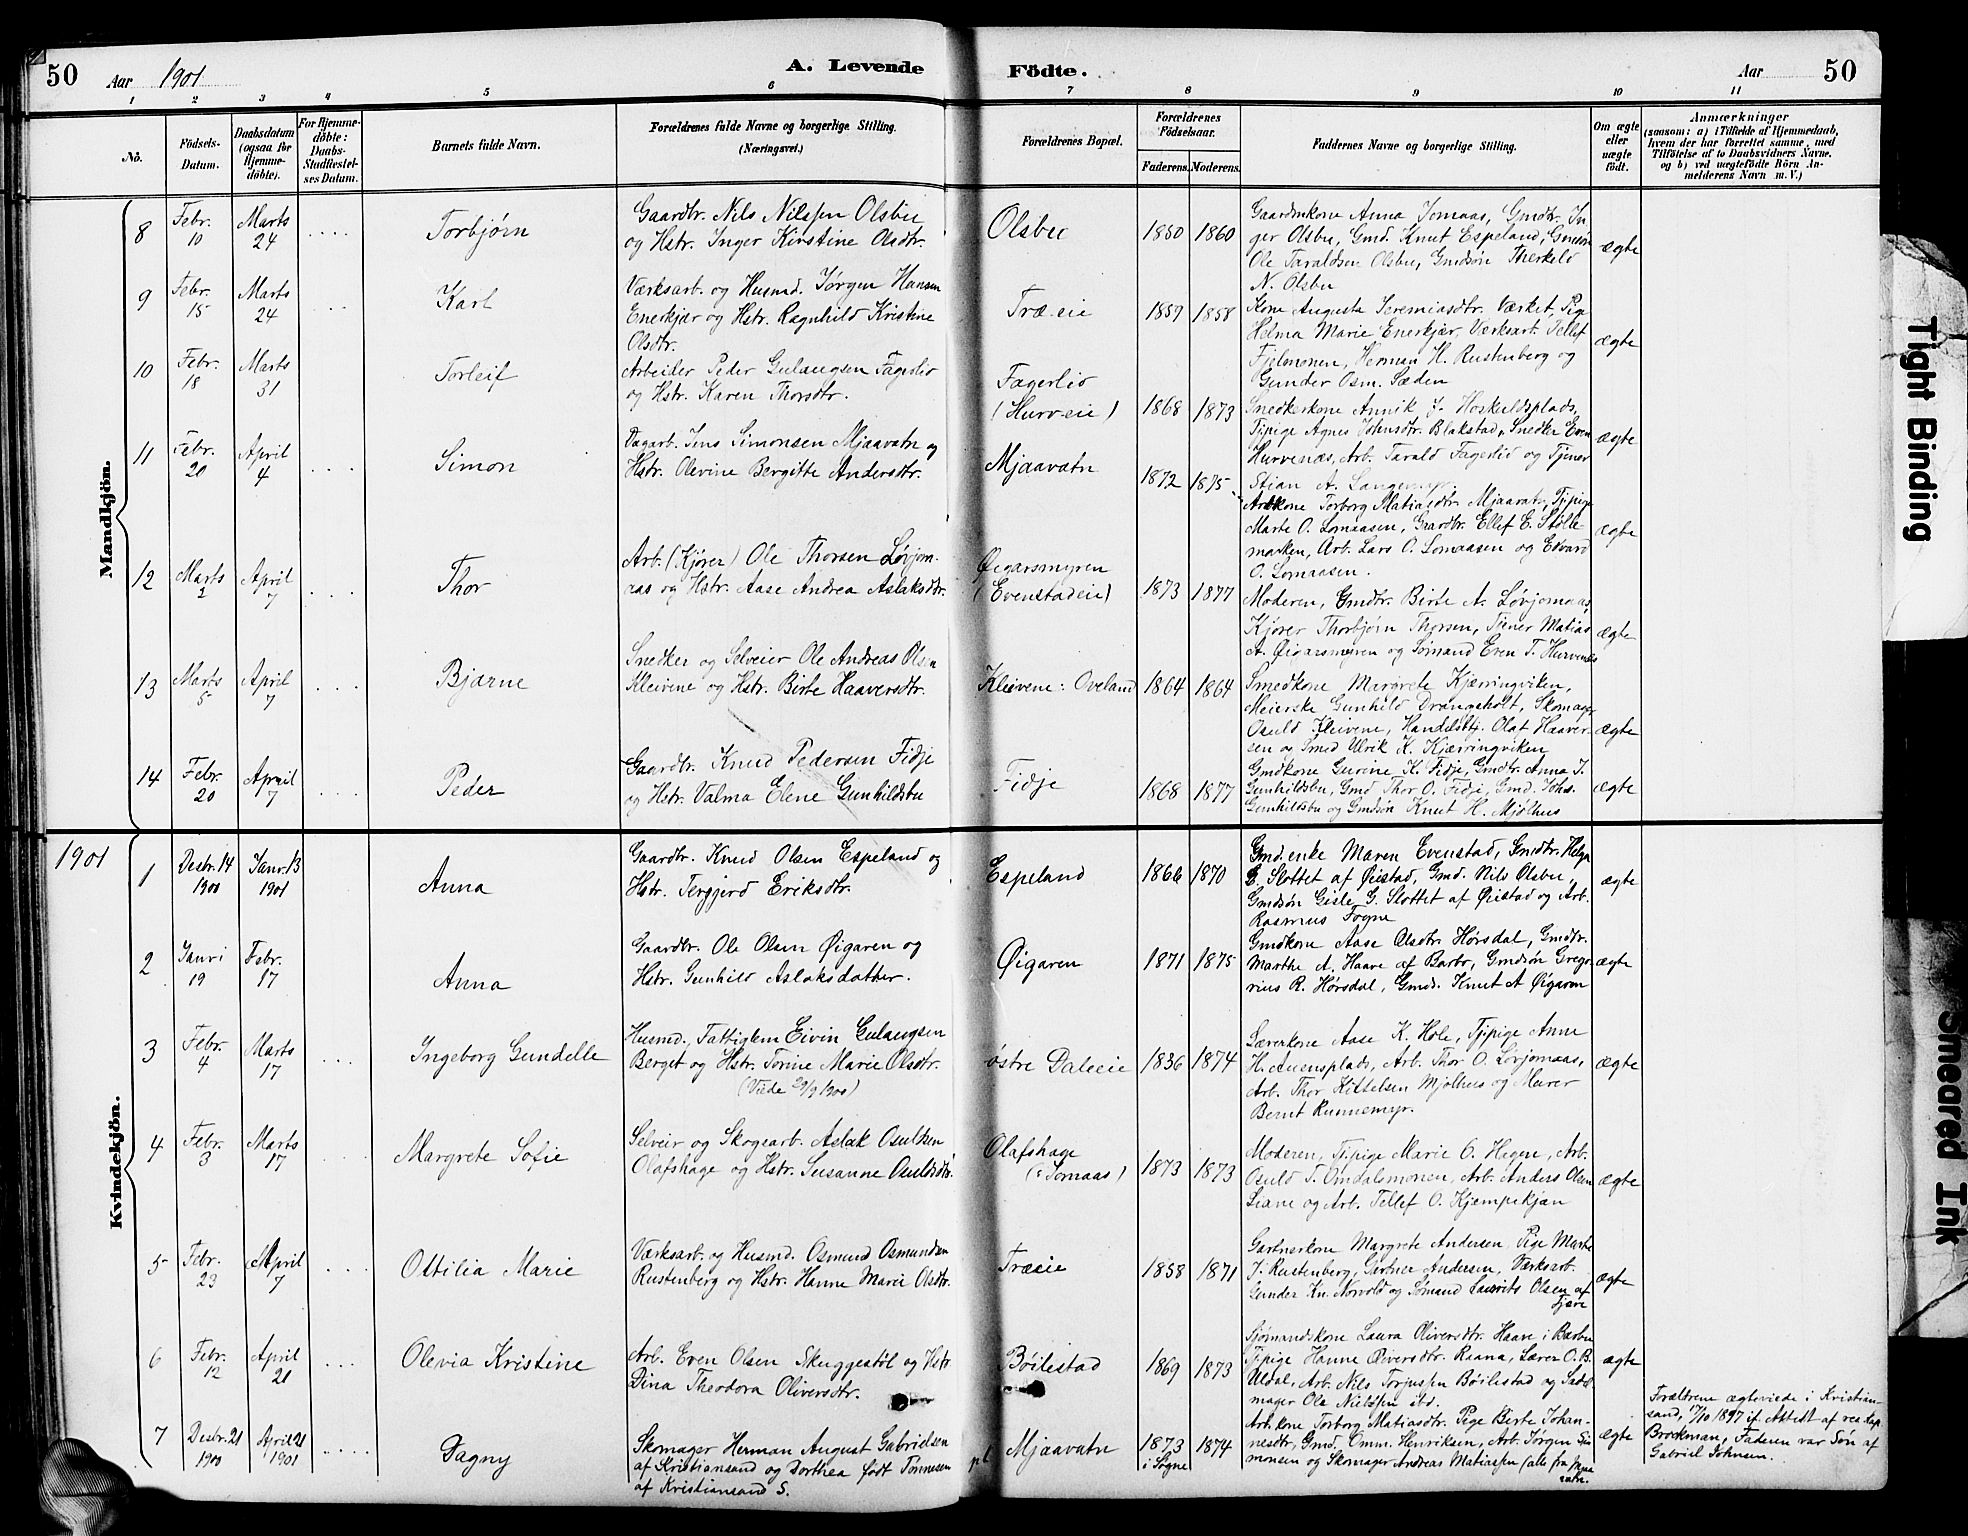 50 Aar 1901 A. Levende Födte. Aar 50
1 2 3 4 5 6 7 8 9 10 11
No.
Födsels-Datum.
Daabsdatum (ogsaa for Hjemme-döbte).
For Hjemme-döbte: Daabs-Stadfæstel-ses Datum.
Barnets fulde Navn.
Forældrenes fulde Navne og borgerlige Stilling.
(Næringsvei.)
Forældrenes Bopæl.
Forældrenes Födselsaar.
Faderens. Moderens.
Faddernes Navne og borgerlige Stilling.
Om ægte eller uægte födt.
Anmærkninger
(saasom: a) i Tilfælde af Hjemmedaab,
hvem der har forrettet samme, med
Tilföielse af to Daabsvidners Navne,
og b) ved uegtefödte Börn An-
melderens Navn m. V.)
Mandkjön.
8 Febr. 10 Marts 24 Torbjørn
Gaardbr. Nils Nilssen Olsbu
og Hstr. Inger Kirstine Olsdtr.
Olsbu 1850 1860
Gaardmkone Anna Jomaas, Gmdtr. In-
ger Olsbu, Gmd. Knut Espeland, Gmdsön
Ole Taraldsen Olsbu, Gmdsön Therkild
N. Olsbu
ægte
9 Febr. 15 Marts 24 Karl
Værksarb. og Husmd. Jørgen Hansen
Enerkjær og Hstr. Ragnhild Kristine
Olsdtr.
Træ-eie 1859 1858
Kone Augusta Jeremiasdtr. Værket, Pige
Helma Marie Enerkjær, Værksarb. Tellef
Fjelmonen, Herman H. Rustenberg og
Gunder Osm. Sæden
ægte
10 Febr. 18 Marts 31 Torleif
Arbeider Peder Gulaugsen Fagerlid
og Hstr. Karen Thorsdtr.
Fagerlid
(Hurveeie) 1868 1873
Snedkerkone Annik J. Hoskuldsplads,
Tjpige Agnes Johnsdtr. Blakstad, Snedker Even
Hurvenæs, Arb. Tarald Fagerlid og Tjener
Stian A. Langemyr.
ægte
11 Febr. 20 April 4 Simon
Dagarb. Jens Simonsen Mjaavatn og
Hstr. Olevine Bergitte Andersdtr.
Mjaavatn 1872 1875
Arbkone Torborg Matiasdtr. Mjaavatn, Tjpige
Marte O. Lomaasen, Gaardbr. Ellef E. Stølle-
marken, Arb. Lars O. Lomaasen og Edvard
O. Lomaasen.
ægte
12 Marts 2 April 7 Thor
Arb. (Kjører) Ole Thorsen Løvjom-
aas og Hstr. Aase Andrea Aslaksdtr.
Øigarsmyren
(Evenstadeie) 1873 1877
Moderen, Gmdtr. Birte A. Løvjomaas,
Kjører Thorbjørn Thorsen, Tjener Matias
A. Øigarsmyren og Sømand Even T. Hurvenes
ægte
13 Marts 5 April 7 Bjarne
Snedker og Selveier Ole Andreas Olsen
Kleivene og Hstr. Birte Haaversdtr.
Kleivene: Oveland 1864 1864
Smedkone Margrete Kjærringviken,
Meierske Gunhild Drangsholt, Skomager
Osuld Kleivene, Handelsbtj. Olaf Haaver-
sen og Smed Ulrik K. Kjærringviken
ægte
14 Febr. 20 April 7 Peder
Gaardbr. Knud Pedersen Fidje
og Hstr. Valma Elene Gunhildsbu
Fidje 1868 1877
Gmdkone Gurine K. Fidje, Gmdtr. Anna J.
Gunhildsbu, Gmd Thor O. Fidje, Gmd. Johs.
Gunhildsbu og Gmdsön Knut H. Mjølhus
ægte
Kvindekjön.
1901
1 Desbr. 14 1900 Janr. 13 1901 Anna
Gaardbr. Knud Olsen Espeland og
Hstr. Tergjerd Eriksdtr.
Espeland 1866 1870
Gmd.enke Maren Evenstad, Gmdtr. Helga
G. Slottet af Øistad, Gmd. Nils Olsbu,
Gmdsön Gisle G. Slottet af Øistad og Arb.
Rasmus Fogne
ægte
2 Janri 19 Febr. 17 Anna
Gaardbr. Ole Olsen Øigaren og
Hstr. Gunhild Aslaksdatter.
Øigaren 1871 1875
Gmdkone Aase Olsdtr. Hørsdal, Gmdtr.
Marthe A. Haave af Barbo, Gmdsön Grego-
rius R. Hørsdal, Gmd. Knut A Øigaren
ægte
3 Febr. 4 Marts 17 Ingeborg Gundelle
Husmd., Fattiglem Eivin Gulaugsen
Berget og Hstr. Torine Marie Olsdtr.
(Viede 29/9 1900)
østre Daleeie 1836 1874
Lærerkone Aase K. Hole, Tjpige Anne
H. Auensplads, Arb. Thor O. Løvjomaas,
Arb. Thor Kittelsen Mjølhus og Murer
Bernt Runnemyr.
ægte
4 Febr. 3 Marts 17 Margrete Sofie
Selveir og Skogearb. Aslak Osuldsen
Olafshage og Hstr. Susanne Osuldsdtr.
Olafshage
(:Jomaas) 1873 1873
Moderen, Tjpige Marie O. Hegen, Arb.
Osuld T. Omdalsmonen, Arb. Anders Olsen
Liane og Arb. Tellef O. Kjæmpekjæn
ægte
5 Febr. 23 April 7 Ottilia Marie
Værksarb. og Husmd. Osmund Osmundsen
Rustenberg og Hstr. Hanne Marie Olsdtr.
Træeie 1858 1871
Gartnerkone Margrete Andersen, Pige Marte
J. Rustenberg, Gartner Andersen, Værksarb.
Gunder Kn. Norvold og Sømand Lauvits Olsen af
Fjære
ægte
6 Febr. 12 April 21 Olevia Kristine
Arb. Even Olsen Skuggestøl og Hstr.
Dina Theodora Oliversdtr.
Bøilestad 1869 1873
Sjømandskone Laura Oliversdtr. Haave i Barbu
Tjpige Hanne Oliversdtr. Raana, Lærer O. B.
Uldal, Arb. Nils Torjussen Bøilestad og Sadel-
mager Ole Nielssen ibd.
ægte
7 Desbr. 21 1900 April 21 1901 Dagny
Skomager Herman August Gabrielsen
af Kristiansand og Dorthea født Tønnesen
af Kristiansand S.
Mjaavatn 1873 i Søgne 1874
Arb.kone Torborg Matiasdtr. Pige Birte Johan-
nesdtr, Gmd. Omm. Henriksen, Arb. Jørgen Si-
monsen og Skomager Andreas Matiassen (alle fra Mjaa-
vatn.
ægte
Forældrene ægteviede i Kristian-
sand, 17/10 1897 if. Attest af res. Kap.
Brockman, Faderen var Søn af
Gabriel Johnsen.
Tight Binding
Smeared Ink